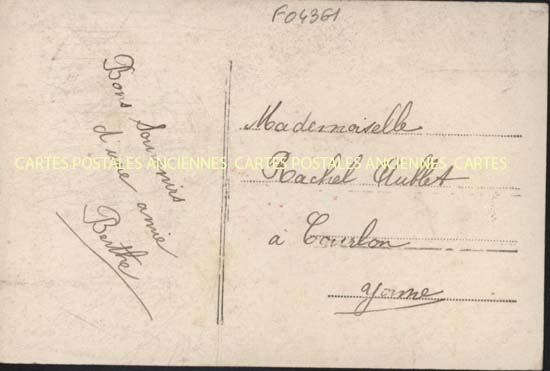 F04361
Bons Souvenirs
d'une amie
Berthe
Mademoiselle
CARTES POSTALES ANCIENNES CARTES POSTALES ANCIENNES CARTES
Rachel
à Courlon
Yonne